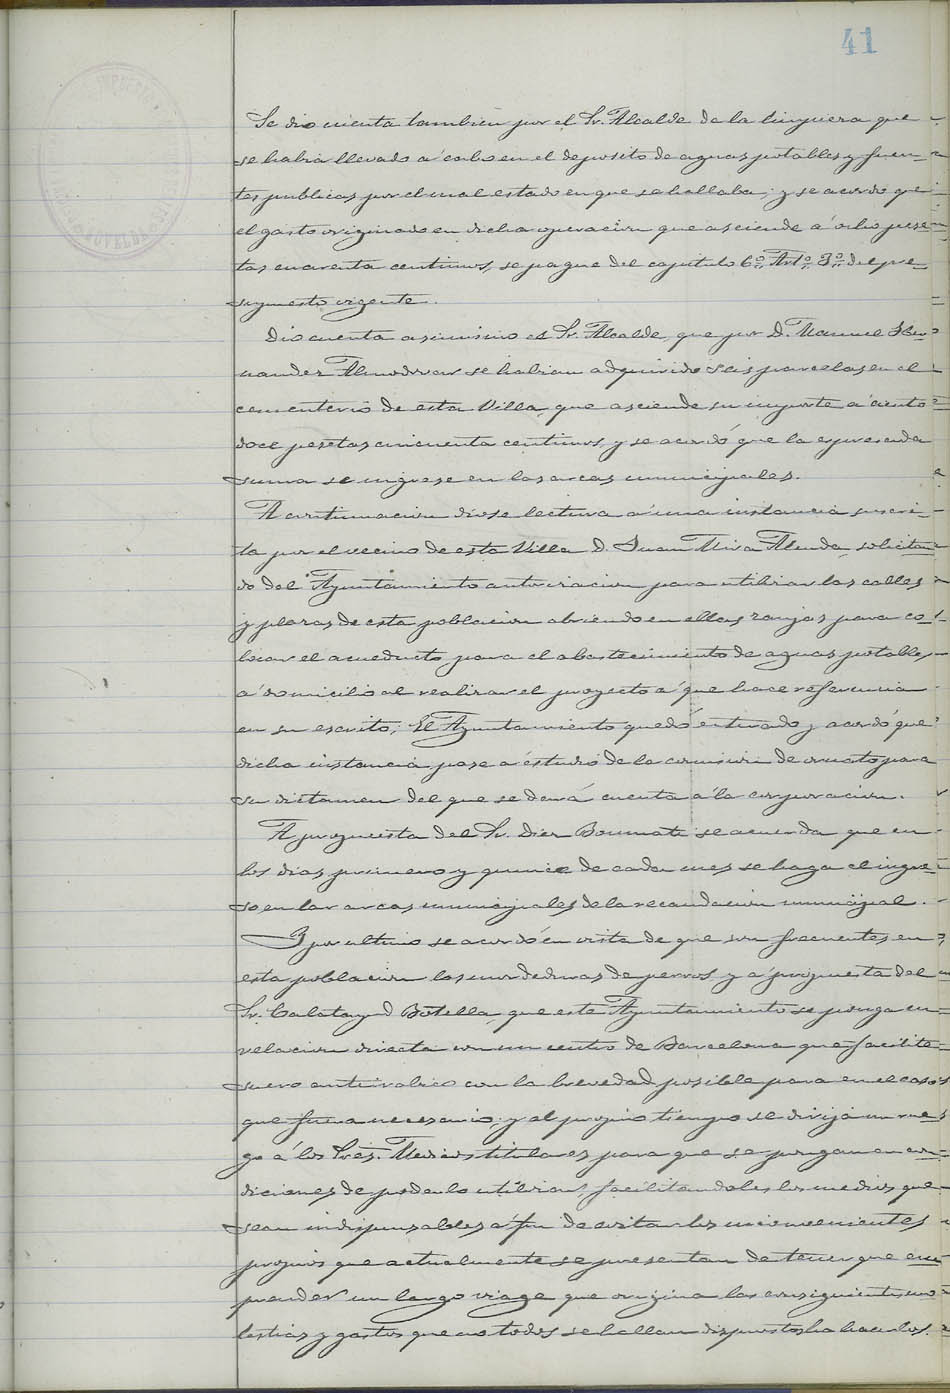 41
Se dio cuenta tambien por el Sr. Alcalde de la limpieza que
se habia llevado á cabo en el deposito de aguas potables y fuen-
tes publicas por el mal estado en que se hallaba; y se acordo que
el gasto originado en dicha operacion que asciende á ocho pese-
tas cuarenta centimos, se pague del capitulo 6º Artº 3º del pre-
supuesto vigente.
Dio cuenta asimismo el Sr. Alcalde, que por D. Manuel Her-
nandez Almodovar se habian adquirido seis parcelas en el
cementerio de esta Villa, que asciende su importe á ciento
doce pesetas cincuenta centimos, y se acordó que la espresada
suma se ingrese en las arcas municipales.
A continuacion diose lectura á una instancia suscri-
ta por el vecino de esta Villa D. Juan Mira Alenda solicitan-
do del Ayuntamiento autorizacion para utilizar las calles
y plazas de esta poblacion abriendo en ellas zanjas para co-
locar el acueducto para el abastecimiento de aguas potables
á domicilio al realizar el proyecto á que hace referencia
en su escrito; El Ayuntamiento quedó enterado y acordó que
dicha instancia pase á estudio de la comision de ornato para
su dictamen del que se dará cuenta á la corporacion.
A propuesta del Sr. Diez Bonmati se acuerda que en
los dias primero y quince de cada mes se haga el ingre-
so en las arcas municipales de la recaudacion municipal.
Y por ultimo se acordó en vista de que son frecuentes en
esta poblacion las mordeduras de perros y a propuesta del
Sr. Calatayud Botella, que este Ayuntamiento se ponga en
relacion directa con un centro de Barcelona que facilite
suero antirrabico con la brevedad posible para en el caso
que fuera necesario; y al propio tiempo se dirija un rue-
go á los Sres. Medicos titulares para que se pongan en con-
diciones de poderlo utilizar, facilitandoles los medios que
sean indispensables á fin de evitar los inconvenientes
propios que actualmente se presentan de tener que em-
prender un largo viage que origina las consiguientes mo-
lestias y gastos que no todos se hallan dispuestos ha hacerlos.
NOVELDA